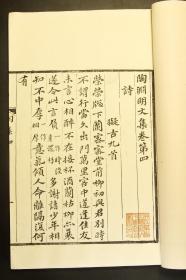 陶淵明文集卷第四
詩
擬古九首
榮榮牎下蘭密密堂前柳初與君別時
不謂行當久出門萬里客中道逢佳友
未言心相醉不在接杯酒蘭枯柳亦衰
遂令此言負多謝諸少年相
知不中厚意氣傾人命離隔復何
有